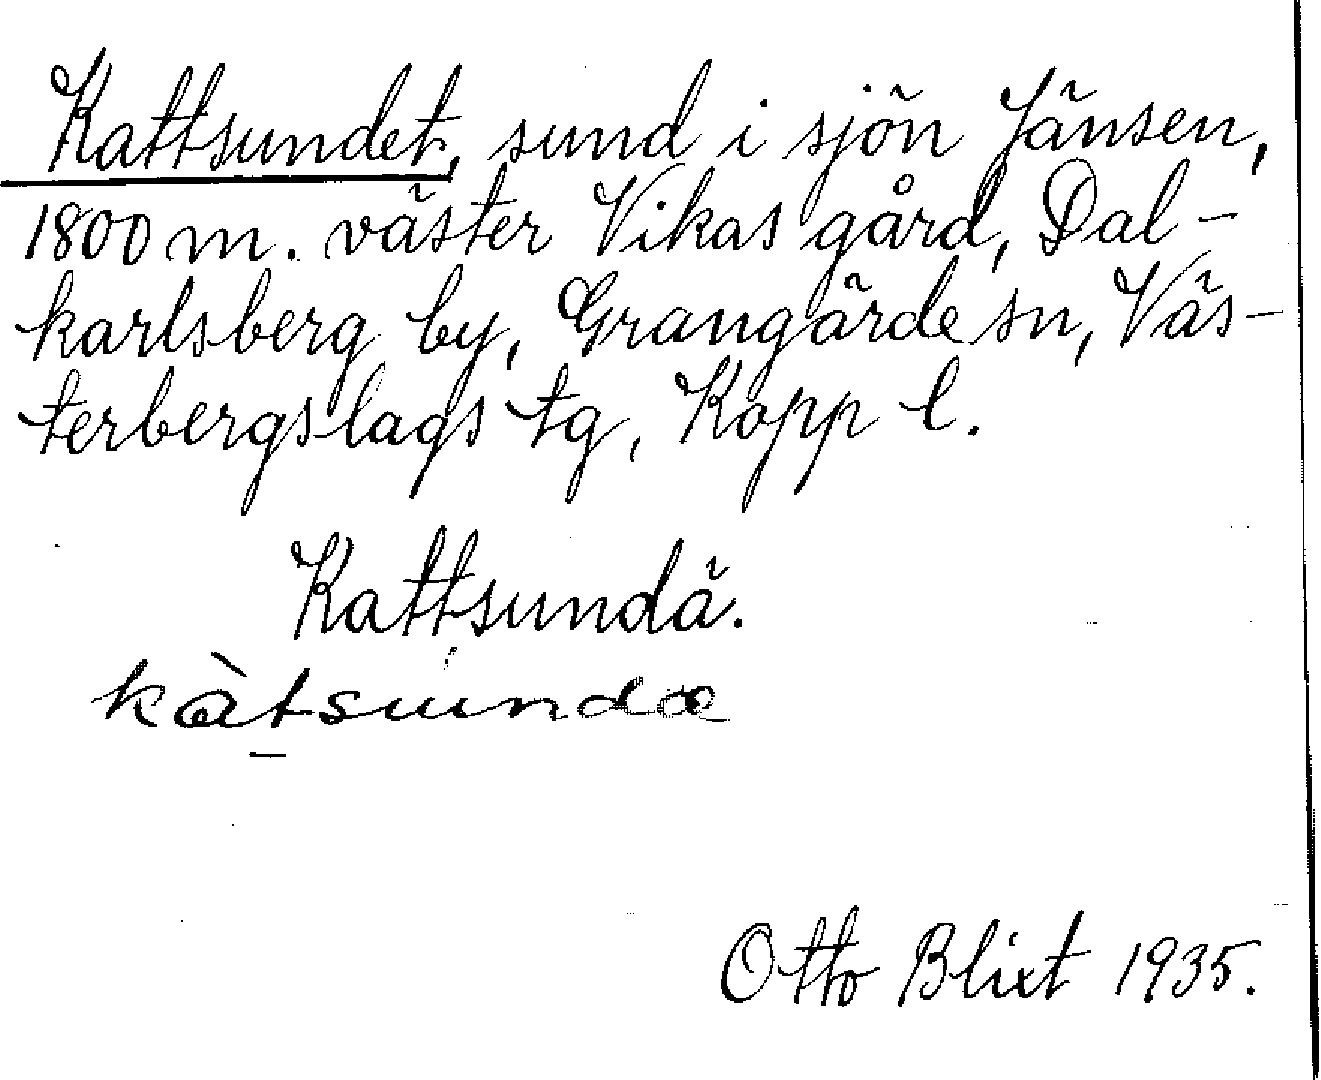 Kattsundet, sund i sjön Jänsen,
1800 m. väster Vikas gård, Dal-
karlsberg by, Grangärde sn, Väs-
terbergslags tg, Kopp l.
Kattsundä.
kàtsundæ
Otto Blixt 1935.